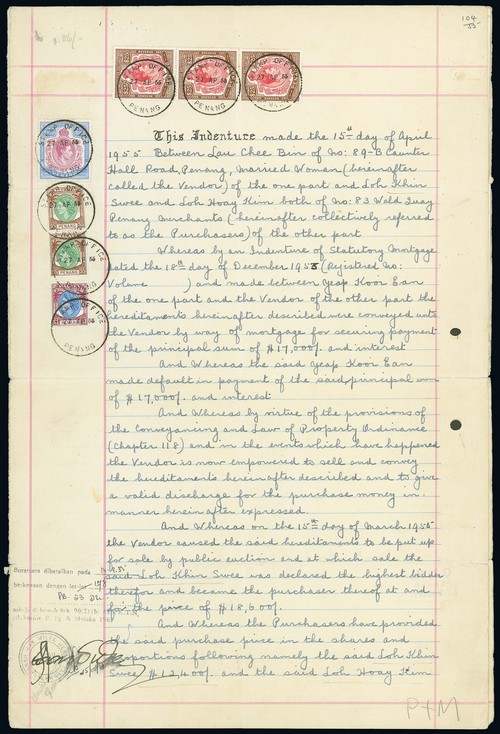 104
STAMP OFFICE
27 AP 55
PENANG
STAMP OFFICE
27 AP 55
PENANG
STAMP OFFICE
27 AP 55
PENANG
STAMP OFFICE
27 AP 55
PENANG
PENANG
STAMP OFFICE
PENANG
This Indenture made the 15th day of April
1955 Between Lau Chee Bin of No: 89-B Caunter
Hall Road, Penang, Married Woman (hereinafter
called the Vendor) of the one part and Loh Khin
Swee and Loh Hoay Kim both of No: 83 Weld Quay
Penang Merchants (hereinafter collectively referred
to as the Purchasers) of the other part
Whereas by an Indenture of Statutory Mortgage
dated the 18th day of December 1953 (Registered No:
Volume ) and made between Yeap Koor Ean
of the one part and the Vendor of the other part the
hereditaments hereinafter described were conveyed unto
the Vendor by way of mortgage for securing payment
of the principal sum of $17,000/. and interest
And Whereas the said Yeap Koor Ean
made default in payment of the said principal sum
of $17,000/. and interest
And Whereas by virtue of the provisions of
the Conveyancing and Law of Property Ordinance
(Chapter 118) and in the events which have happened
the Vendor is now empowered to sell and convey
the hereditaments hereinafter described and to give
a valid discharge for the purchase money in
manner hereinafter expressed.
And Whereas on the 15th day of March 1955
the Vendor caused the said hereditaments to be put up
for sale by public auction and at which sale the
said Loh Khin Swee was declared the highest bidder
therefor and became the purchaser thereof at and
for the price of $18,600/.
And Whereas the Purchasers have provided
the said purchase price in the shares and
proportions following namely the said Loh Khin
Swee $12,400/. and the said Loh Hoay Kim
dibetalkan pada
berkenaan dengan
P+M